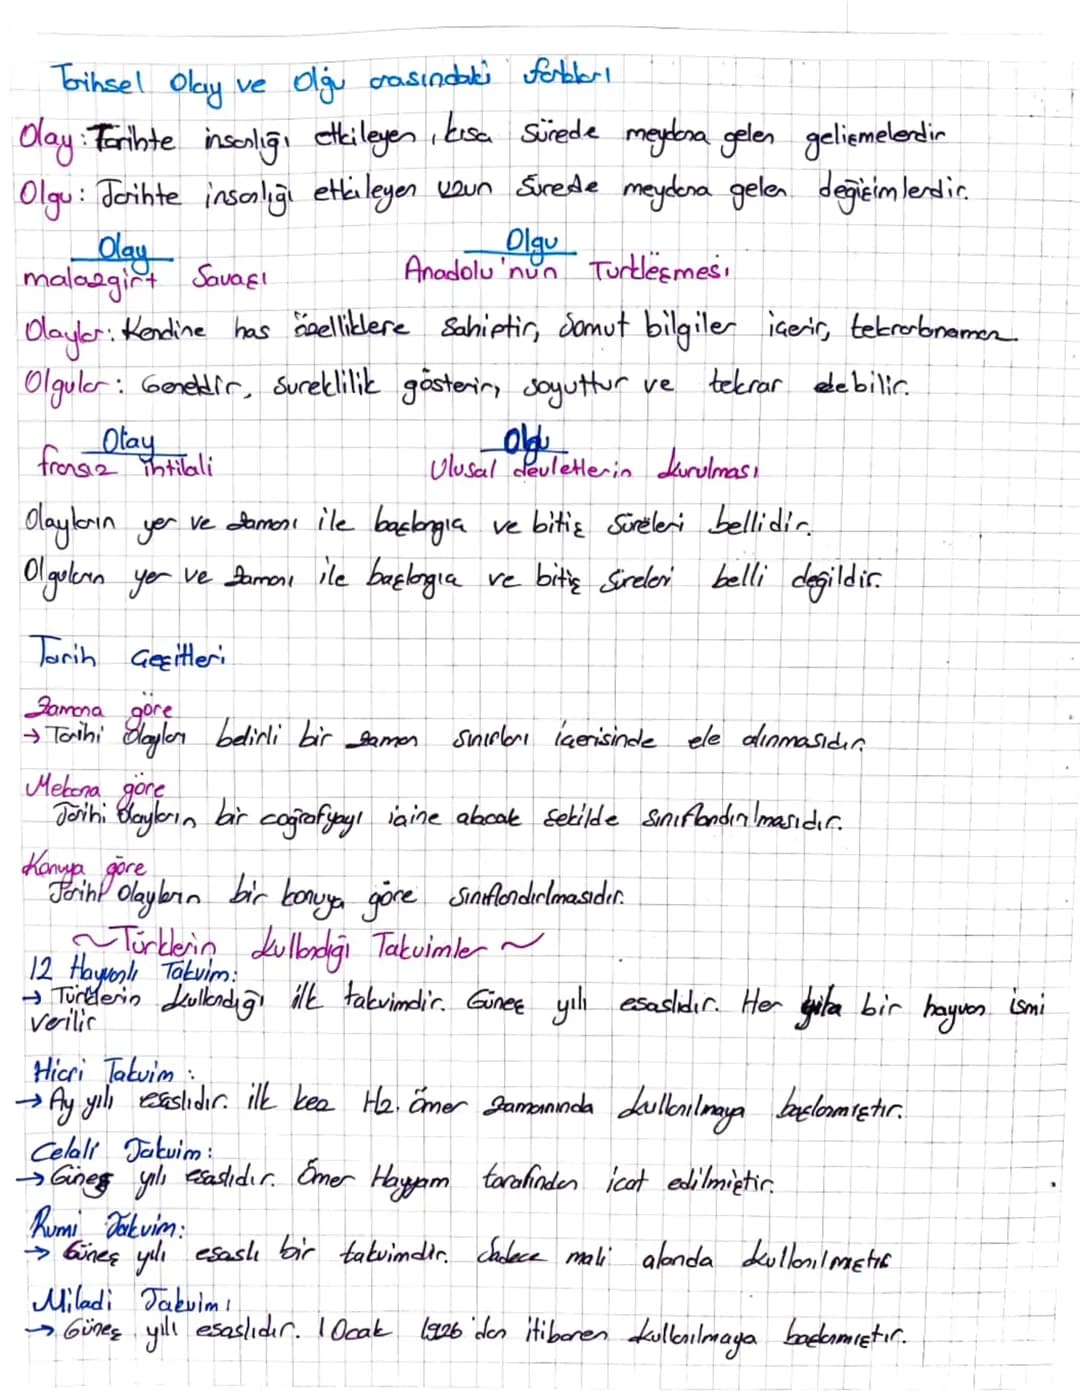 Tarihsel Olay ve Olgu arasındaki farkları
Olay: Tarihte insanlığı etkileyen, kısa sürede meydana gelen gelişmelerdir
Olgu: Tarihte insanlığı etkileyen uzun sürede meydana gelen değişimlerdir.
Olay Olgu
malazgirt Savaşı Anadolu'nun Türkleşmesi
Olaylar: Kendine has özelliklere sahiptir, Somut bilgiler içerir, tekrarlanamaz.
Olgular: Geneldir, süreklilik gösterir, soyuttur ve tekrar edebilir.
Olay Olgu
fransız ihtilali Ulusal devletlerin kurulması
Olayların yer ve zamanı ile başlangıa ve bitiş süreleri bellidir.
Olguların yer ve zamanı ile başlangıa ve bitiş süreleri belli değildir.
Tarih Çeşitleri
Zamana göre
→ Tarihi olayları belirli bir zaman sınırları içerisinde ele alınmasıdır.
Mekana göre
Tarihi olayların bir coğrafyayı içine alacak şekilde sınıflandırılmasıdır.
Konuya göre
Tarihi Olayların bir konuya göre sınıflandırılmasıdır.
~Türklerin kullandığı Takvimler~
12 Hayvanlı Takvim:
→ Türklerin kullandığı ilk takvimdir. Güneş yılı esaslıdır. Her yıla bir hayvan ismi
verilir
Hicri Takvim:
→ Ay yılı esaslıdır. ilk kez Hz. ömer zamanında kullanılmaya başlanmıştır.
Celali Takvim:
→ Güneş yılı esaslıdır. Ömer Hayyam tarafından icat edilmiştir.
Rumi Takvim:
→ Güneş yılı esaslı bir takvimdir. Sadece mali alanda kullanılmıştır
Miladi Takvim:
→ Güneş yılı esaslıdır. 1 Ocak 1926'dan itibaren kullanılmaya başlanmıştır.